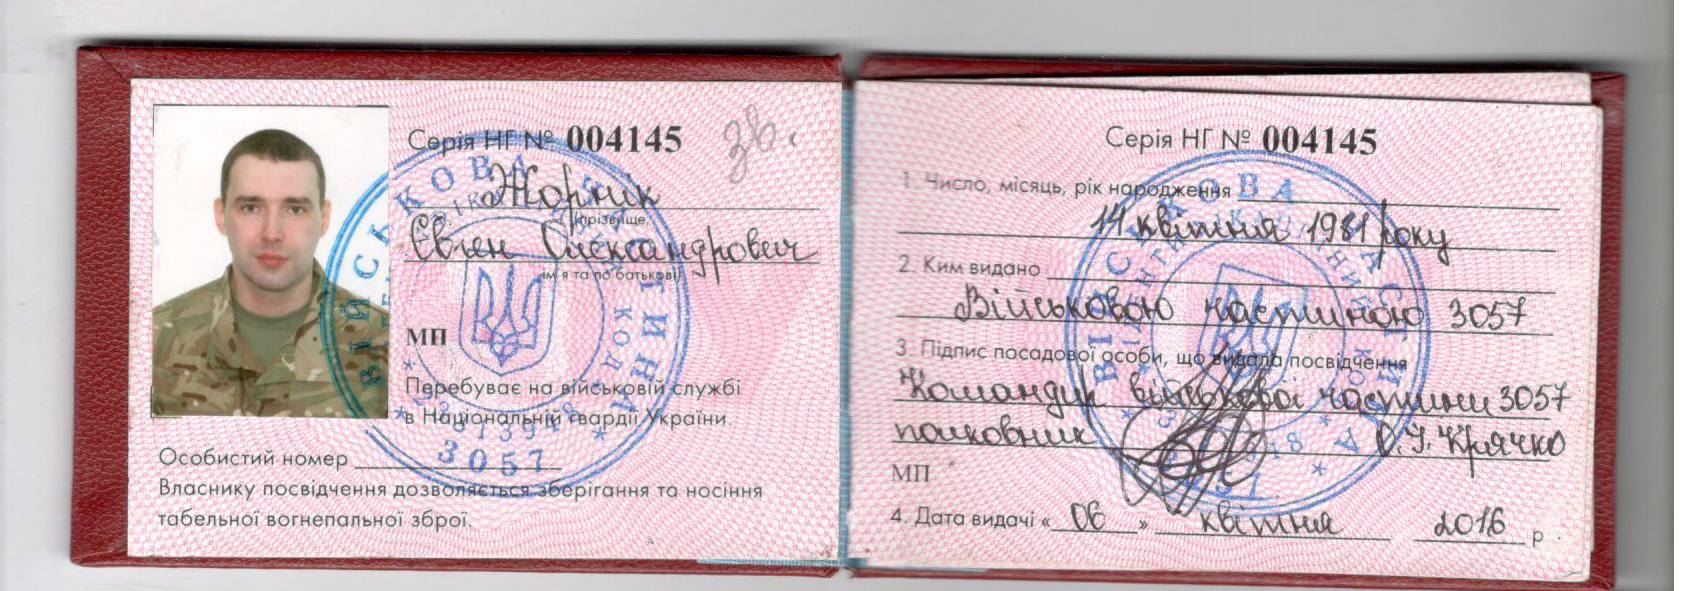 Серія НГ № 004145
зв.
Жорник
прізвище,
Євген Олександрович
ім'я та по батькові
МП
Перебуває на військовій службі
в Національній гвардії України.
Особистий номер
Власнику посвідчення дозволяється зберігання та носіння
табельної вогнепальної зброї.
3057
Серія НГ № 004145
1. Число, місяць, рік народження
14 квітня 1981 року
2. Ким видано
Військовою частиною 3057
3. Підпис посадової особи, що видала посвідчення
Командир військової частини 3057
полковник О.І. Крячко
МП
4. Дата видачі « 06 » квітня 2016 р.